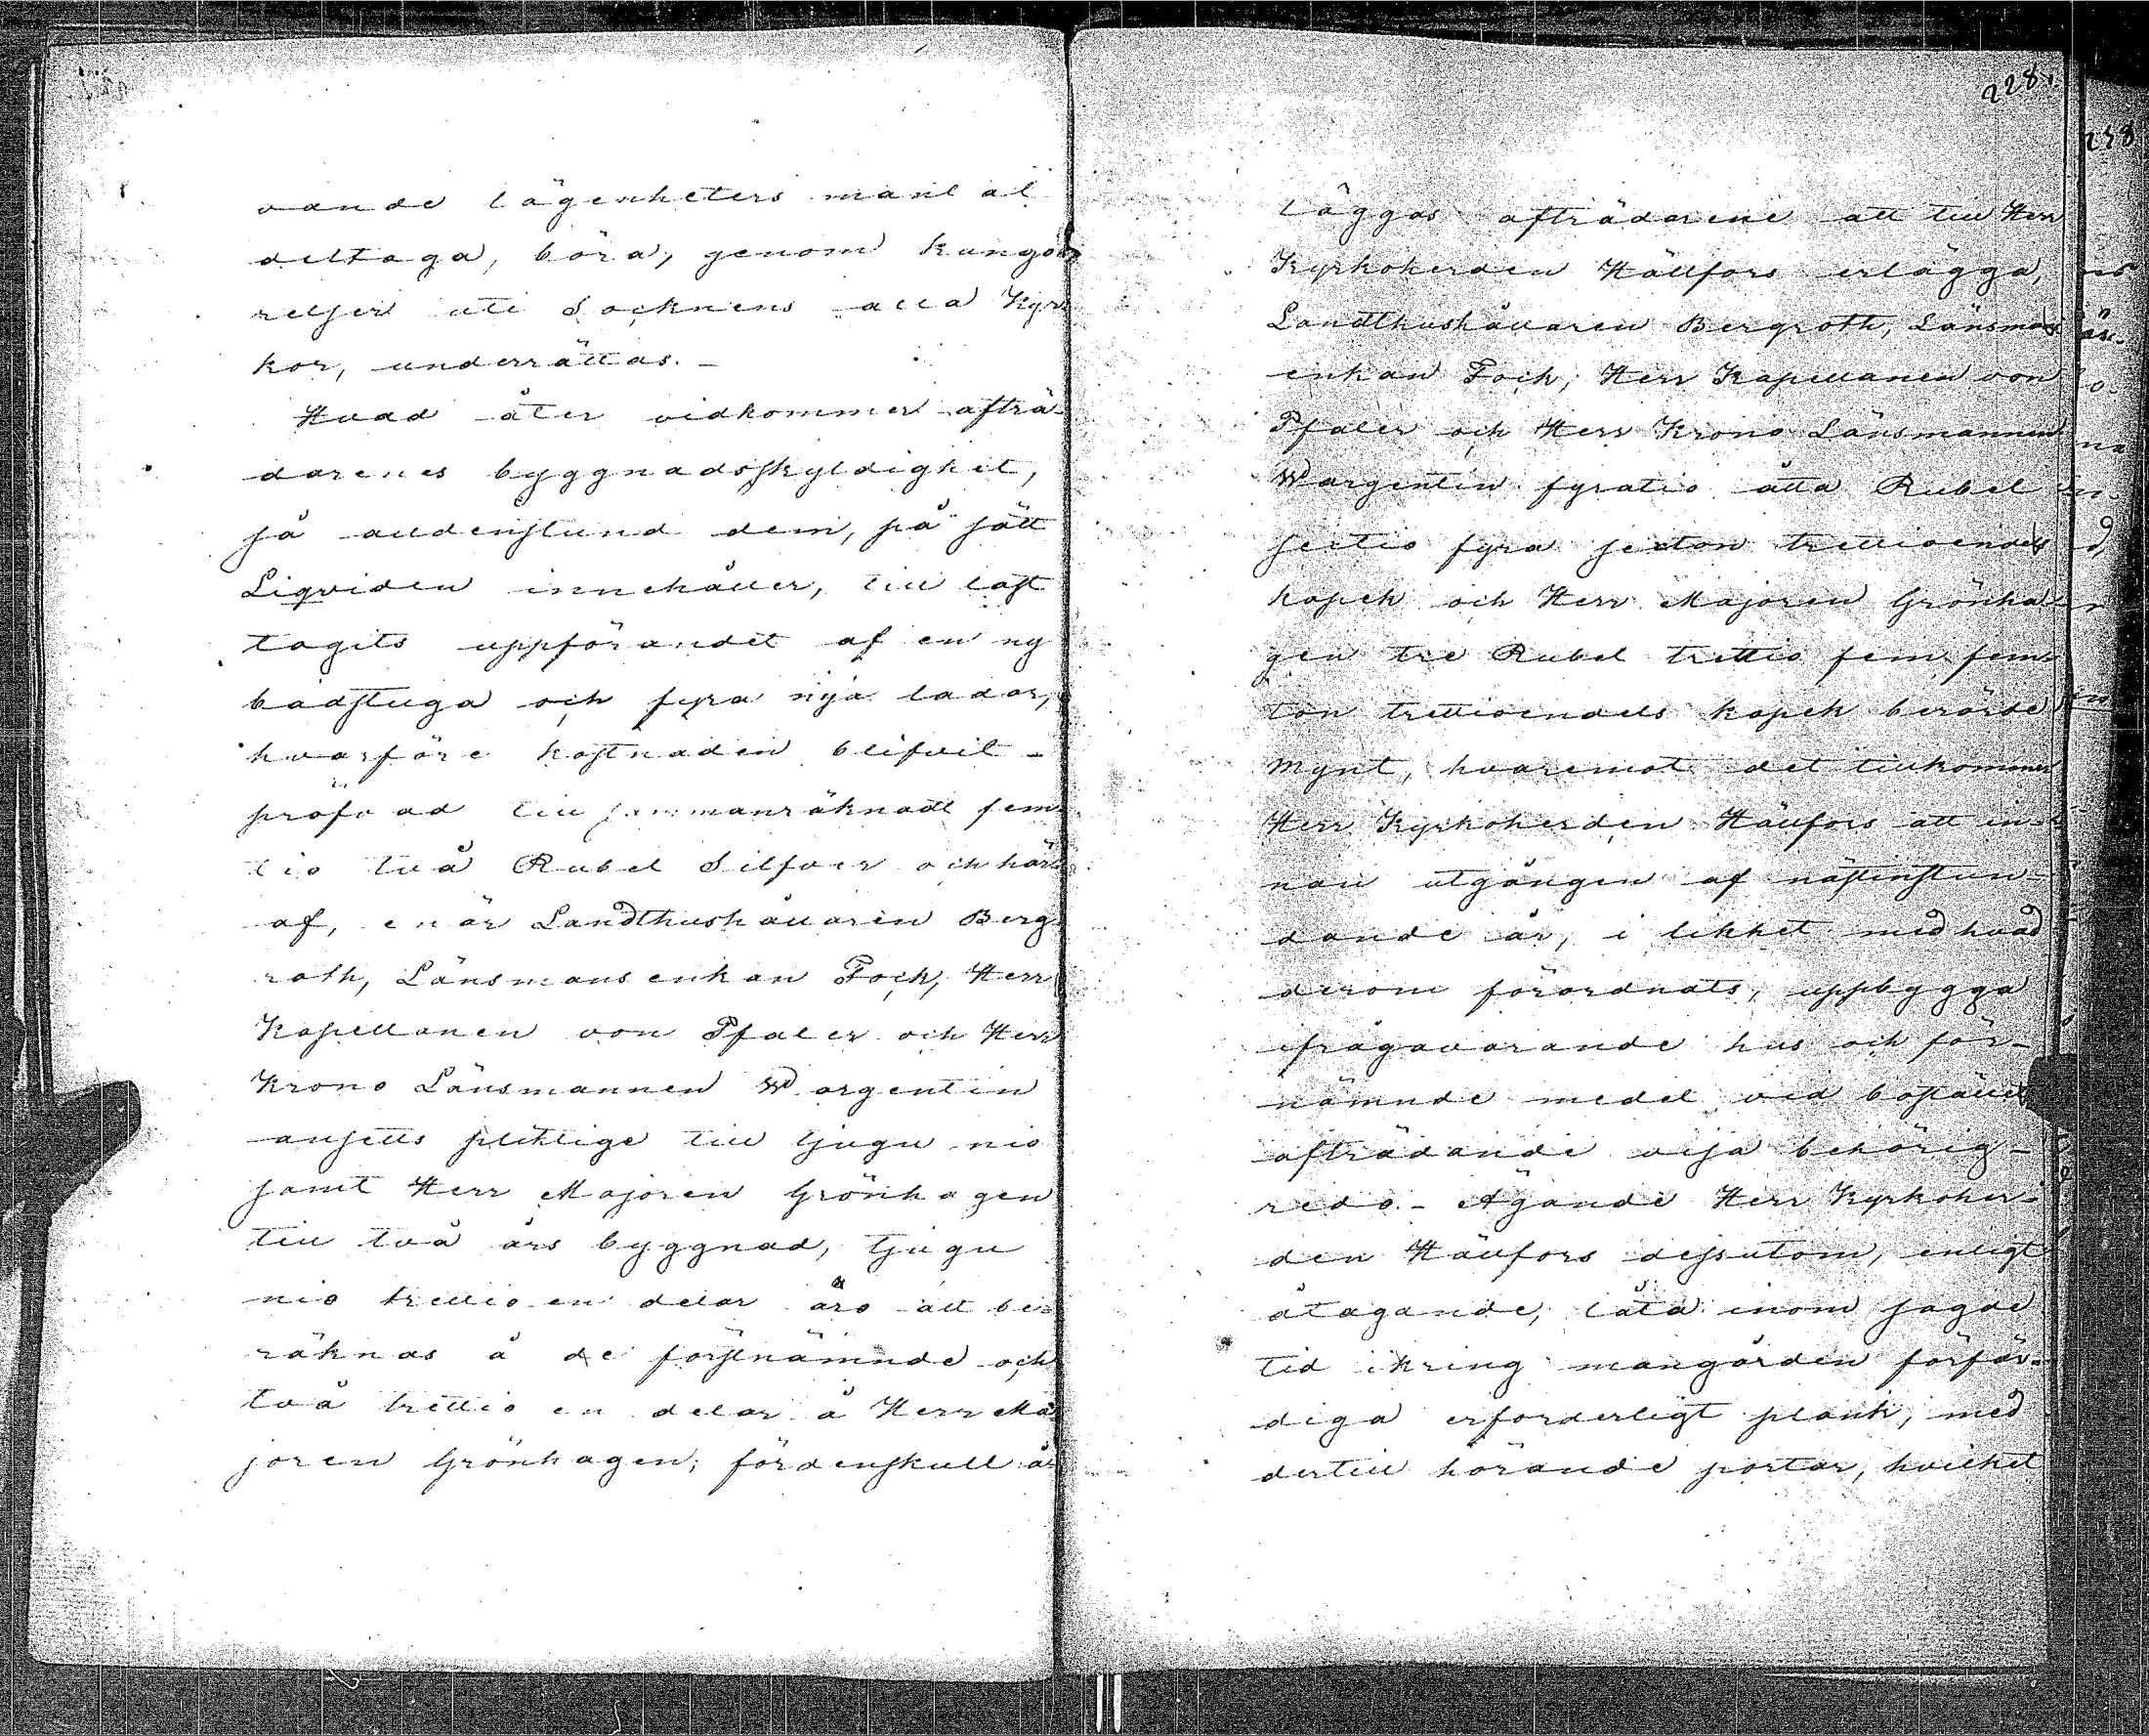 vande lägenheters mantal
deltaga, böra, genom kungö-
relser uti Socknens alla Kyr-
kor, underrättas.-
Hvad åter vidkommer afträ-
darenes byggnadsskyldighet,
så alldenstund dem, på sätt
Liqviden innehåller, till last
tagits uppförandet af en ny
badstuga och fyra nya lador,
hvarföre kostnaden blifvit
pröfvad till sammanräknadt fem-
tio två Rubel Silfver och här-
af, enär Landthushållaren Berg-
roth, Länsmansenkan Fock, Herr
Kapellanen von Pfaler och Herr
Krono Länsmannen Wargentin
ansetts pliktige till tjugu nio
samt Herr Majoren Grönhagen
till två års byggnad, tjugu
nio trettioendelar äro att be-
räknas å de förstnämnde och
två trettioendelar å Herr Ma-
joren Grönhagen; fördenskull å-
228.
läggas afträdarene att till Herr
Kyrkoherden Hällfors erlägga,
Landthushållaren Bergroth, Länsmans
enkan Fock, Herr Kapellanen von
Pfaler och Herr Krono Länsmannen
Wargentin fyratio åtta Rubel
sextio fyra sexton trettioendels
kopek och Herr Majoren Grönha-
gen tre Rubel trettio fem fem-
ton trettioendels kopek berörde
mynt, hvaremot det tillkommer
Herr Kyrkoherden Hällfors att in-
nan utgången af nästinstun-
dande år, i likhet med hvad
derom förordnats, uppbygga
ifrågavarande hus och för-
nämnde medel vid boställets
afträdande visa behörig
redo.- Ägande Herr Kyrkoher-
den Hällfors dessutom, enligt
åtagande, låta inom sagde
tid ikring mangården förfär-
diga erforderligt plank, med
dertill hörande portar, hvilket